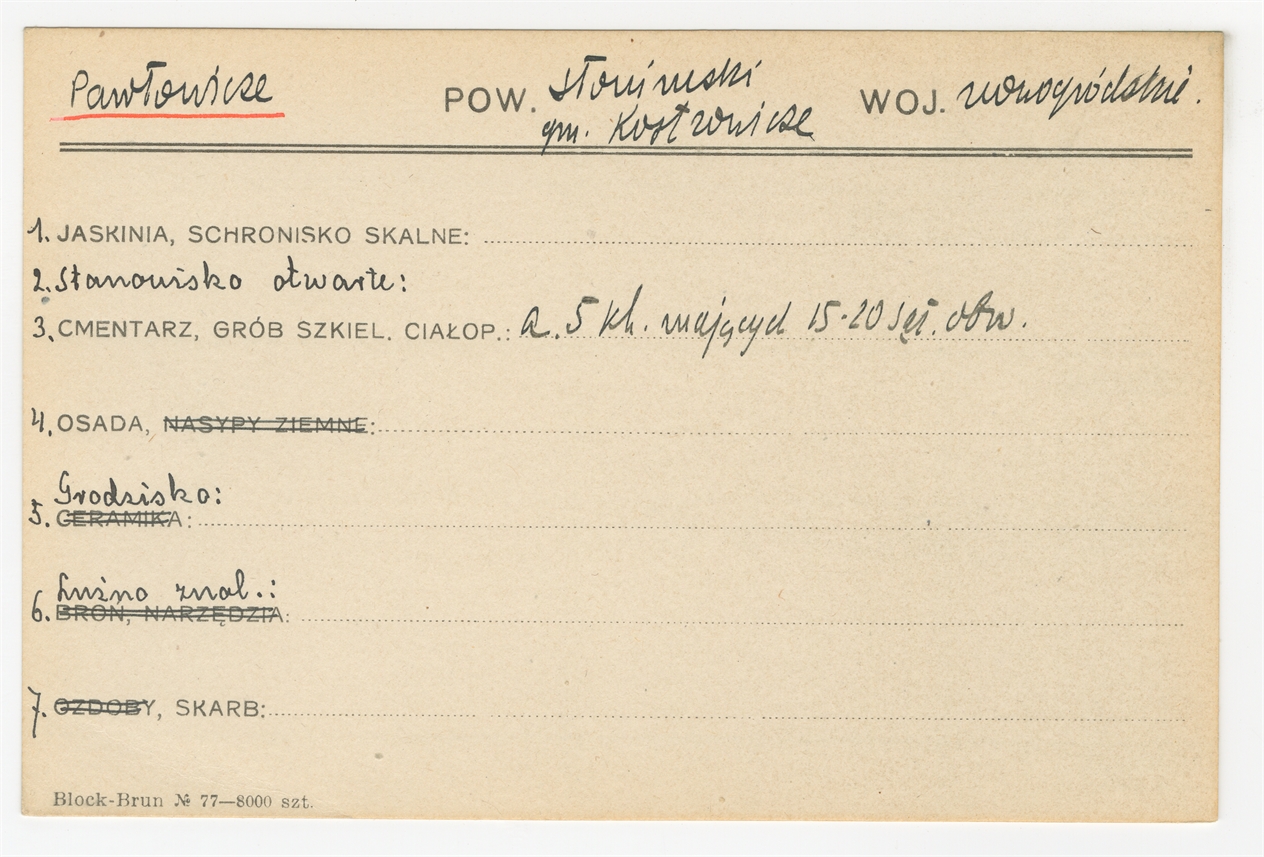 Pawłowicze POW. słonimski WOJ. nowogródzkie.
gm. Kostrowicze
1. JASKINIA, SCHRONISKO SKALNE:
2. Stanowisko otwarte:
3. CMENTARZ, GRÓB SZKIEL. CIAŁOP.: a. 5 kh. mających 15-20 sąż. obw.
4. OSADA, NASYPY ZIEMNE:
Grodzisko:
5. CERAMIKA:
Luźno znal.:
6. BROŃ, NARZĘDZIA:
7. OZDOBY, SKARB:
Block-Brun № 77—8000 szt.